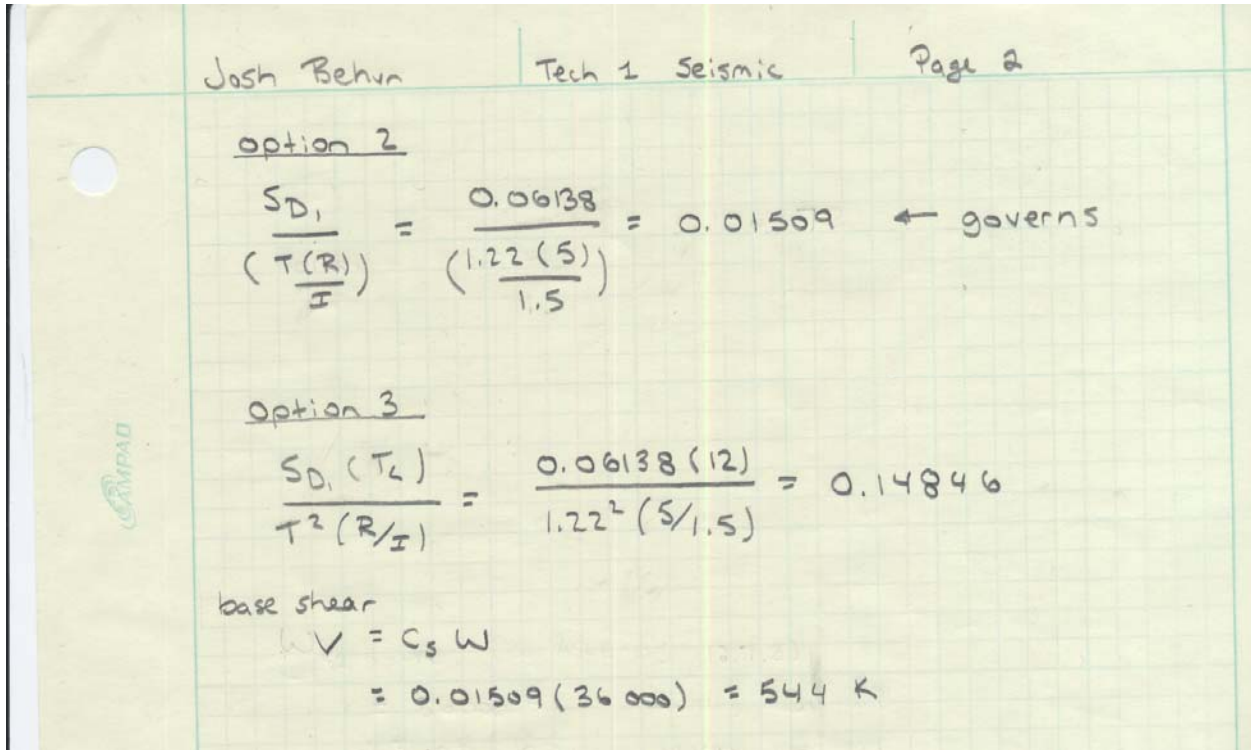 Josh Behun Tech 1 Seismic Page 2
option 2
S_D₁ / (T(R)/I) = 0.06138 / (1.22(5)/1.5) = 0.01509 ← governs
Option 3
S_D₁(T_L) / T²(R/I) = 0.06138(12) / 1.22²(5/1.5) = 0.14846
base shear
V = C_s W
= 0.01509(36 000) = 544 K
AMPAD